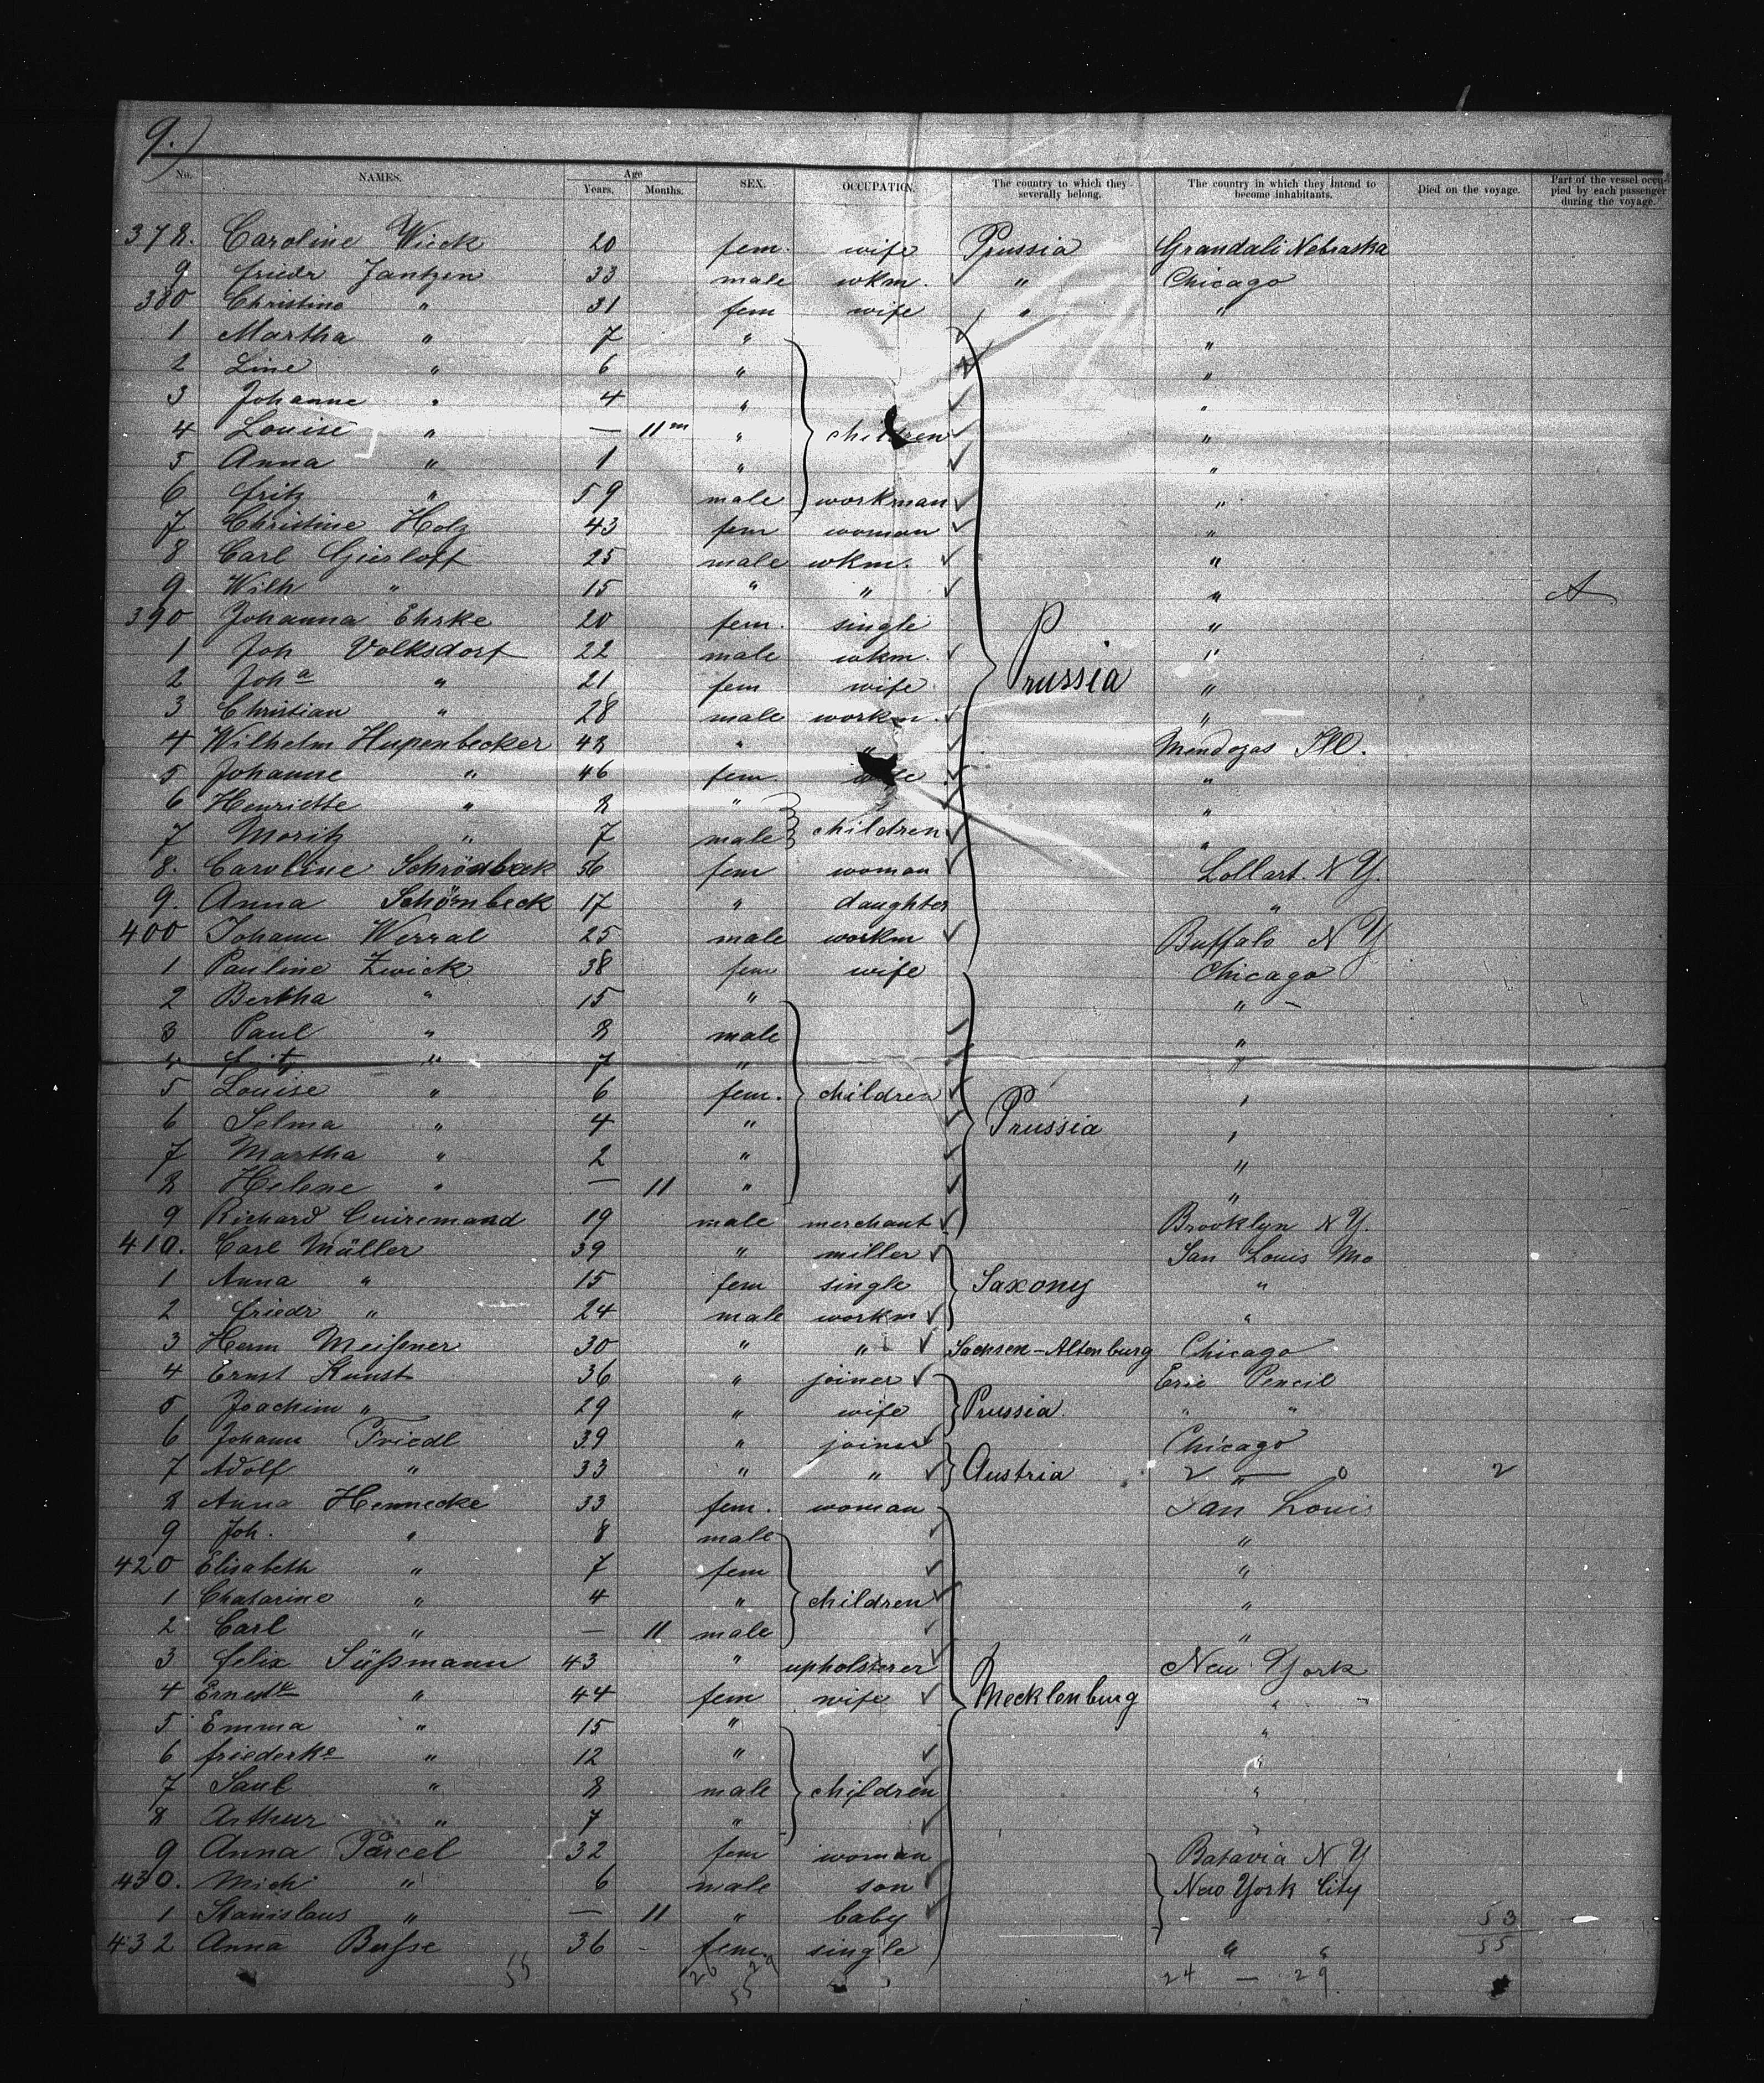 9.)
No. NAMES. Age Years. Months. SEX. OCCUPATION. The country to which they severally belong. The country in which they intend to become inhabitants. Died on the voyage. Part of the vessel occupied by each passenger during the voyage.
378. Caroline Wieck 20 fem. wife Prussia Nebraska
9 Friedr Jantzen 33 male wkm. " Chicago
380 Christine " 31 fem wife " "
1 Martha " 7 " "
2 Line " 6 " "
3 Johanne " 4 " "
4 Louise " — 11m " children "
5 Anna " 1 " "
6 Fritz " 59 male workman "
7 Christine Holz 43 fem woman "
8 Carl Gierloff 25 male wkm. "
9 Wilh " 15 " " "
390 Johanna Ehrke 20 fem. single "
1 Joh Volksdorf 22 male wkm. Prussia "
2 Joha " 21 fem wife "
3 Christian " 28 male workm. "
4 Wilhelm Hupenbecker 48 " " Mendozas Ill.
5 Johanne " 46 fem wife "
6 Henriette " 8 " "
7 Moritz " 7 male children "
8. Caroline 56 fem woman Lollart. N Y.
9. Anna Schörnbeck 17 " daughter "
400 Johann Werral 25 male workm Buffalo N Y
1 Pauline Zwick 38 fem wife Chicago
2 Bertha " 15 " " –
3 Paul " 8 male "
4 " 7 " "
5 Louise " 6 fem. children "
6 Selma " 4 " Prussia "
7 Martha " 2 " "
8 Helene " — 11 " "
9 Richard Cuiremand 19 male merchant Brooklyn N Y.
410. Carl Müller 39 " miller San Louis Mo
1 Anna " 15 fem single Saxony "
2 Friedr " 24 male workm "
3 Herm Meißner 30 " " Sachsen-Altenburg Chicago
4 Ernst Kunst 36 " joiner Erie Pencil
5 Joachim " 29 " wife Prussia. " "
6 Johann Friedl 39 " joiner Chicago
7 Adolf " 33 " " Austria 2 " 0 2
8 Anna Hennecke 33 fem. woman San Louis
9 Joh. " 8 male "
420 Elisabeth " 7 fem "
1 Chatarine " 4 " children "
2 Carl " — 11 male "
3 Felix Süßmann 43 " upholsterer New York
4 Ernedte " 44 fem wife Mecklenburg "
5 Emma " 15 " "
6 Friederke " 12 " "
7 Saul " 8 male children "
8 Arthur " 7 "
9 Anna Parcel 32 fem woman Batavia N Y
430. Mich " 6 male son New York City
1 Stanislaus " — 11 " baby 53
432 Anna Bußse 36 - fem. single " " 55
55 26 29 24 — 29
55